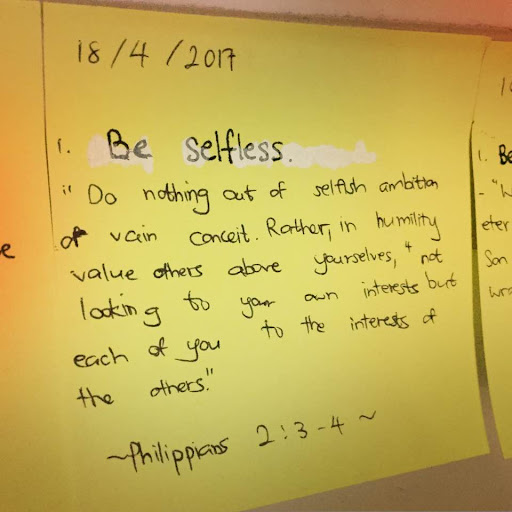 18/4/2017
1. Be selfless.
" Do nothing out of selfish ambition
or vain conceit. Rather, in humility
value others above yourselves, 4 not
looking to your own interests but
each of you to the interests of
the others."
~Philippians 2:3-4~
e
1. Be
- "
eter
Son
wra